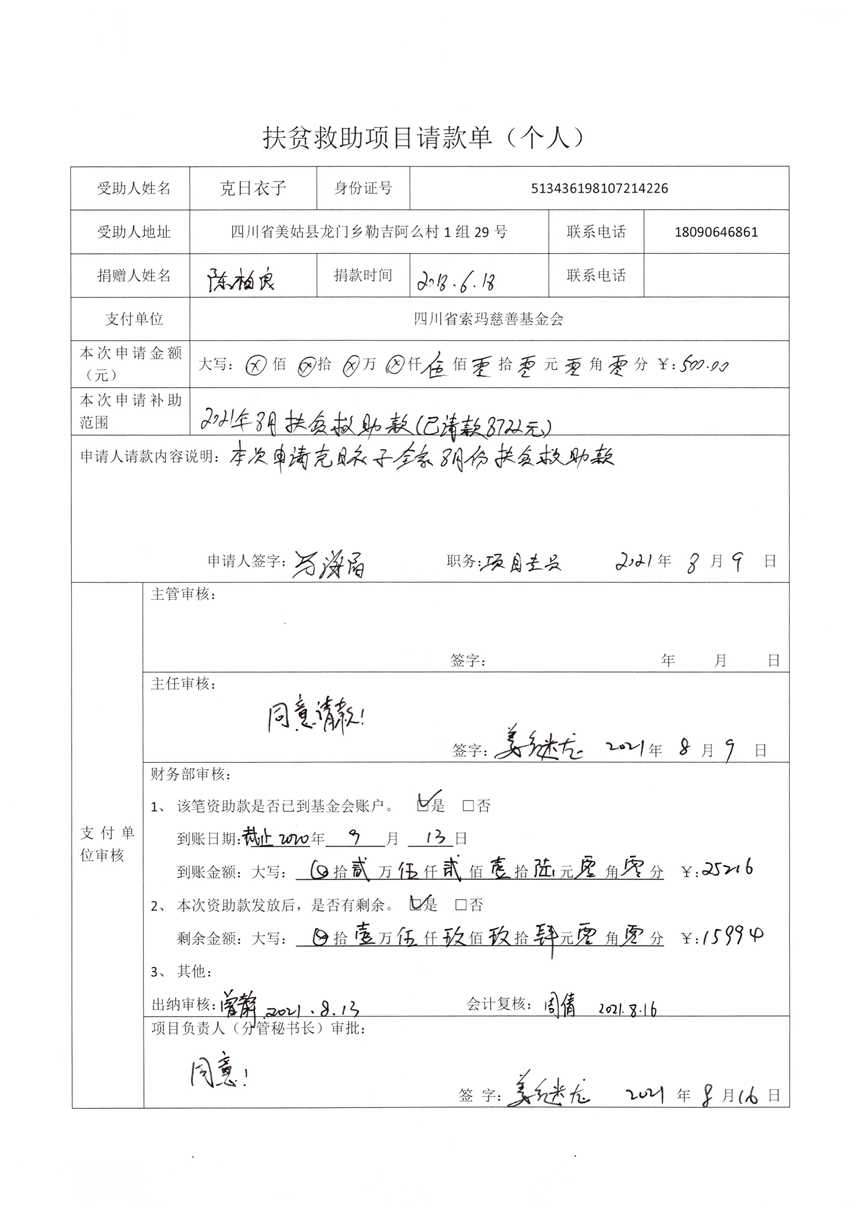 扶贫救助项目请款单（个人）
受助人姓名 克日衣子 身份证号 513436198107214226
受助人地址 四川省美姑县龙门乡勒吉阿么村1组29号 联系电话 18090646861
捐赠人姓名 陈柏良 捐款时间 2018.6.18 联系电话
支付单位 四川省索玛慈善基金会
本次申请金额（元） 大写：ⓧ佰ⓧ拾ⓧ万ⓧ仟伍佰零拾零元零角零分 ￥:500.00
本次申请补助范围 2021年8月扶贫救助款(已请款8722元)
申请人请款内容说明：本次申请克日衣子全家8月份扶贫救助款
申请人签字： 职务:项目专员 2021年8月9日
支付单位审核
主管审核：
签字： 年 月 日
主任审核：
同意请款！
签字：姜继龙 2021年8月9日
财务部审核：
1、 该笔资助款是否已到基金会账户。 ☑是 □否
到账日期:截止2020年9月13日
到账金额：大写： ⓧ拾贰万伍仟贰佰壹拾陆元零角零分 ￥:25216
2、 本次资助款发放后，是否有剩余。 ☑是 □否
剩余金额：大写： ⓧ拾壹万伍仟玖佰玖拾肆元零角零分 ￥:15994
3、 其他：
出纳审核：曾静 2021.8.13 会计复核：周倩 2021.8.16
项目负责人（分管秘书长）审批：
同意！
签 字：姜继龙 2021年8月16日